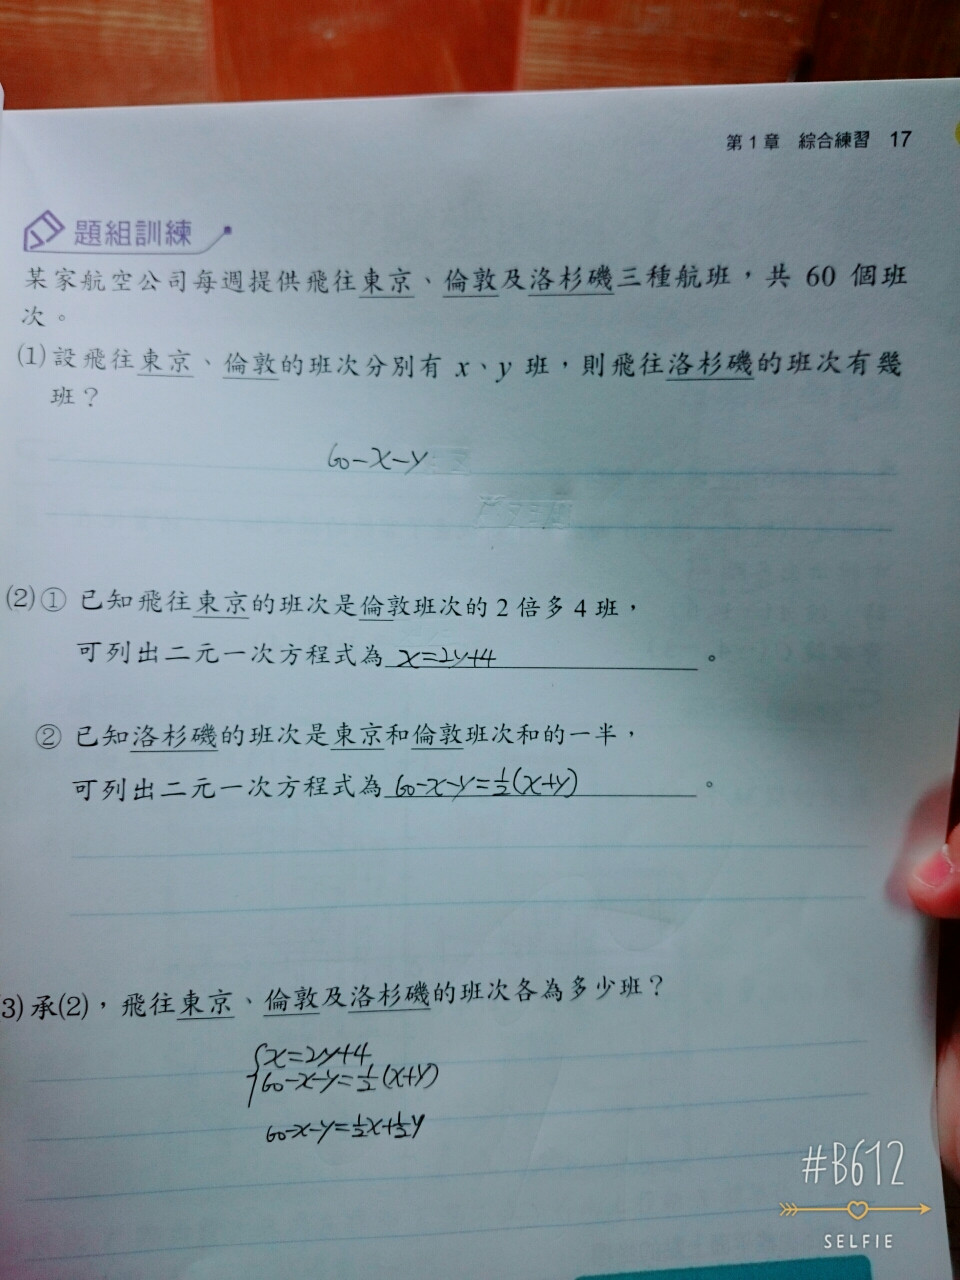 第1章 綜合練習 17
題組訓練
某家航空公司每週提供飛往東京、倫敦及洛杉磯三種航班，共 60 個班
次。
(1)設飛往東京、倫敦的班次分別有 x、y 班，則飛往洛杉磯的班次有幾
班？
60-x-y
(2)① 已知飛往東京的班次是倫敦班次的 2 倍多 4 班，
可列出二元一次方程式為 x=2y+4 。
② 已知洛杉磯的班次是東京和倫敦班次和的一半，
可列出二元一次方程式為 60-x-y=½(x+y) 。
3)承(2)，飛往東京、倫敦及洛杉磯的班次各為多少班？
{x=2y+4
60-x-y=½(x+y)
60-x-y=½x+½y
#B612
SELFIE